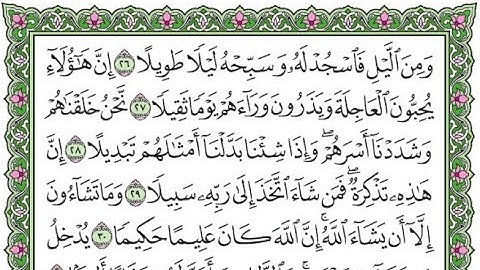 وَمِنَ ٱلَّيۡلِ فَٱسۡجُدۡ لَهُۥ وَسَبِّحۡهُ لَيۡلٗا طَوِيلًا ٢٦ إِنَّ هَٰٓؤُلَآءِ
يُحِبُّونَ ٱلۡعَاجِلَةَ وَيَذَرُونَ وَرَآءَهُمۡ يَوۡمٗا ثَقِيلٗا ٢٧ نَّحۡنُ خَلَقۡنَٰهُمۡ
وَشَدَدۡنَآ أَسۡرَهُمۡۖ وَإِذَا شِئۡنَا بَدَّلۡنَآ أَمۡثَٰلَهُمۡ تَبۡدِيلًا ٢٨ إِنَّ
هَٰذِهِۦ تَذۡكِرَةٞۖ فَمَن شَآءَ ٱتَّخَذَ إِلَىٰ رَبِّهِۦ سَبِيلٗا ٢٩ وَمَا تَشَآءُونَ
إِلَّآ أَن يَشَآءَ ٱللَّهُۚ إِنَّ ٱللَّهَ كَانَ عَلِيمًا حَكِيمٗا ٣٠ يُدۡخِلُ